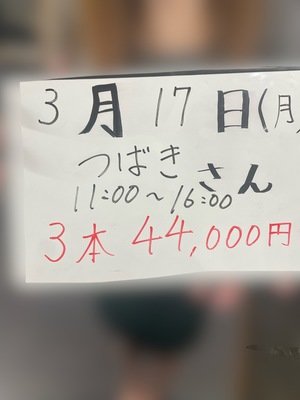 3月17日(月)
つばきさん
11:00～16:00
3本 44,000円